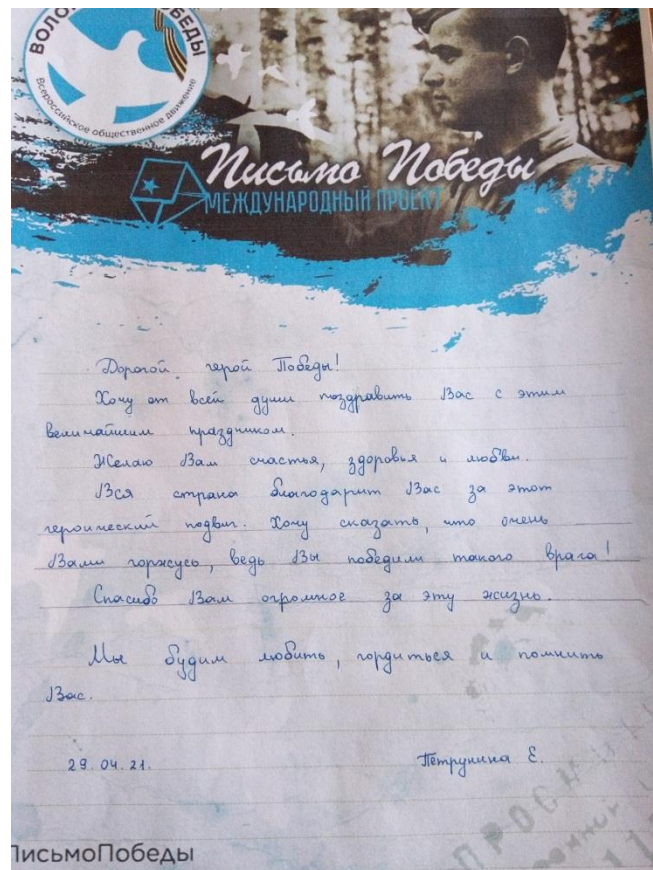 ПОБЕДЫ
Всероссийское общественное движение
Письмо Победы
МЕЖДУНАРОДНЫЙ ПРОЕКТ
Дорогой герой Победы!
Хочу от всей души поздравить Вас с этим
величайшим праздником.
Желаю Вам счастья, здоровья и любви.
Вся страна благодарит Вас за этот
героический подвиг. Хочу сказать, что очень
Вами горжусь, ведь Вы победили такого врага!
Спасибо Вам огромное за эту жизнь.
Мы будим любить, гордиться и помнить
Вас.
29.04.21. Петрунина Е.
ПисьмоПобеды